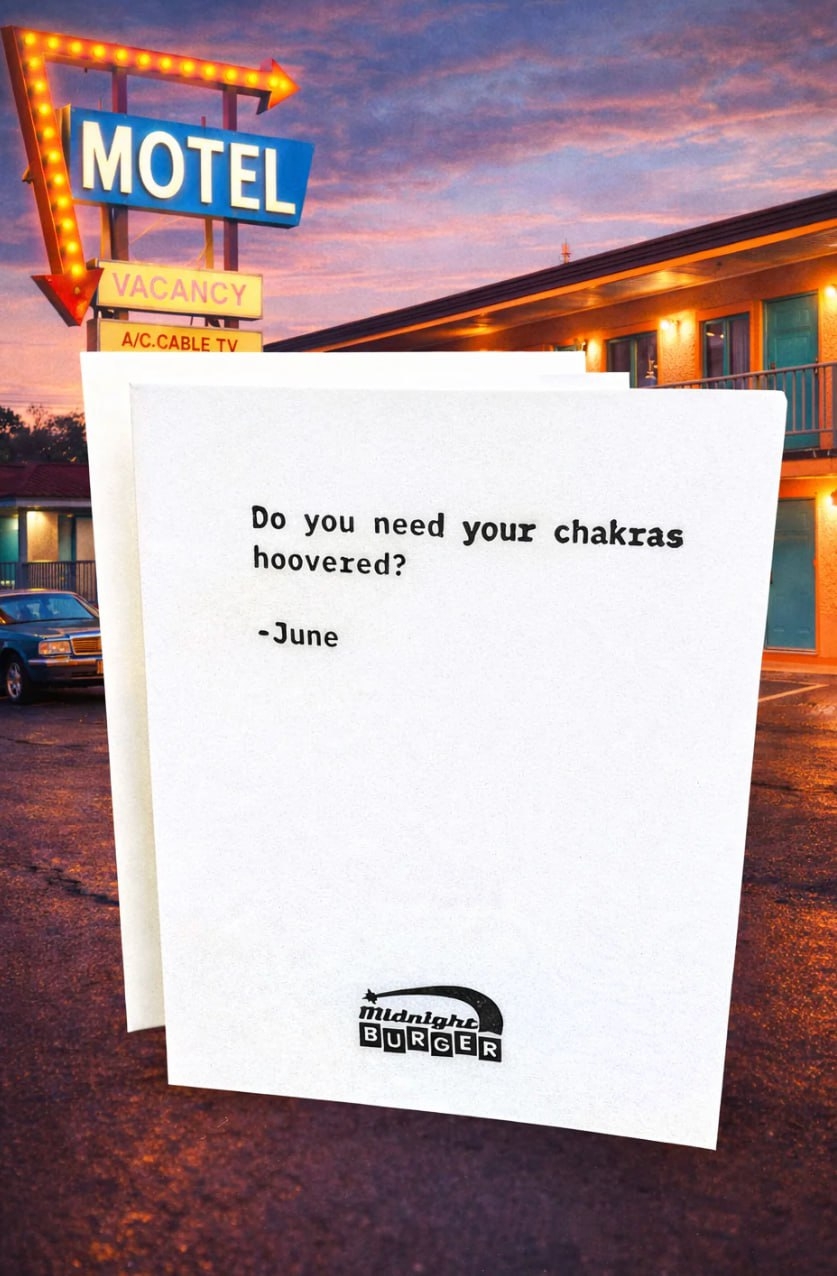 MOTEL
VACANCY
A/C.CABLE TV
Do you need your chakras
hoovered?
-June
Midnight
BURGER